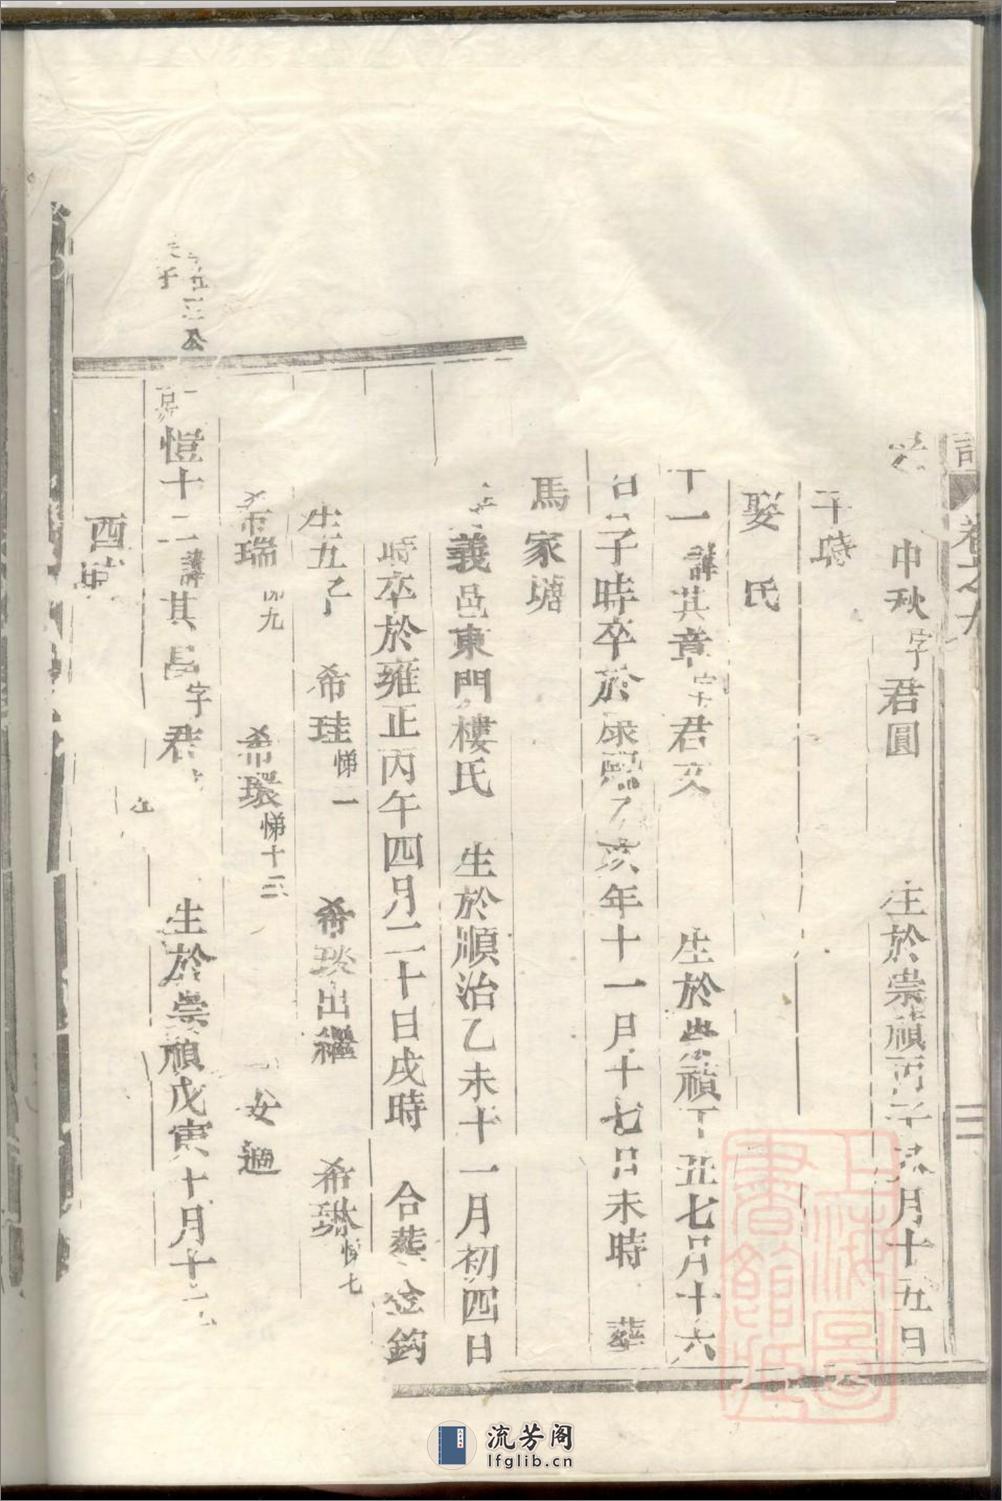 卷之九
中秋字君圓 生於崇禎丙子 月十五日
時
娶 氏
十一諱其章字君文 生於崇禎丁丑七月十六
日子時卒於康熙乙亥年十一月十七日未時 葬
馬家塘
義邑東門樓氏 生於順治乙未十一月初四日
時卒於雍正丙午四月二十日戌時 合葬金鈎
生五子 希珪悌一 希琰出繼 希琳悌七
希瑞 九 希環悌十三 女適
愷十二諱其昌字君 生於崇禎戊寅十月十
酉時
上海圖書館藏
流芳阁
lfglib.cn